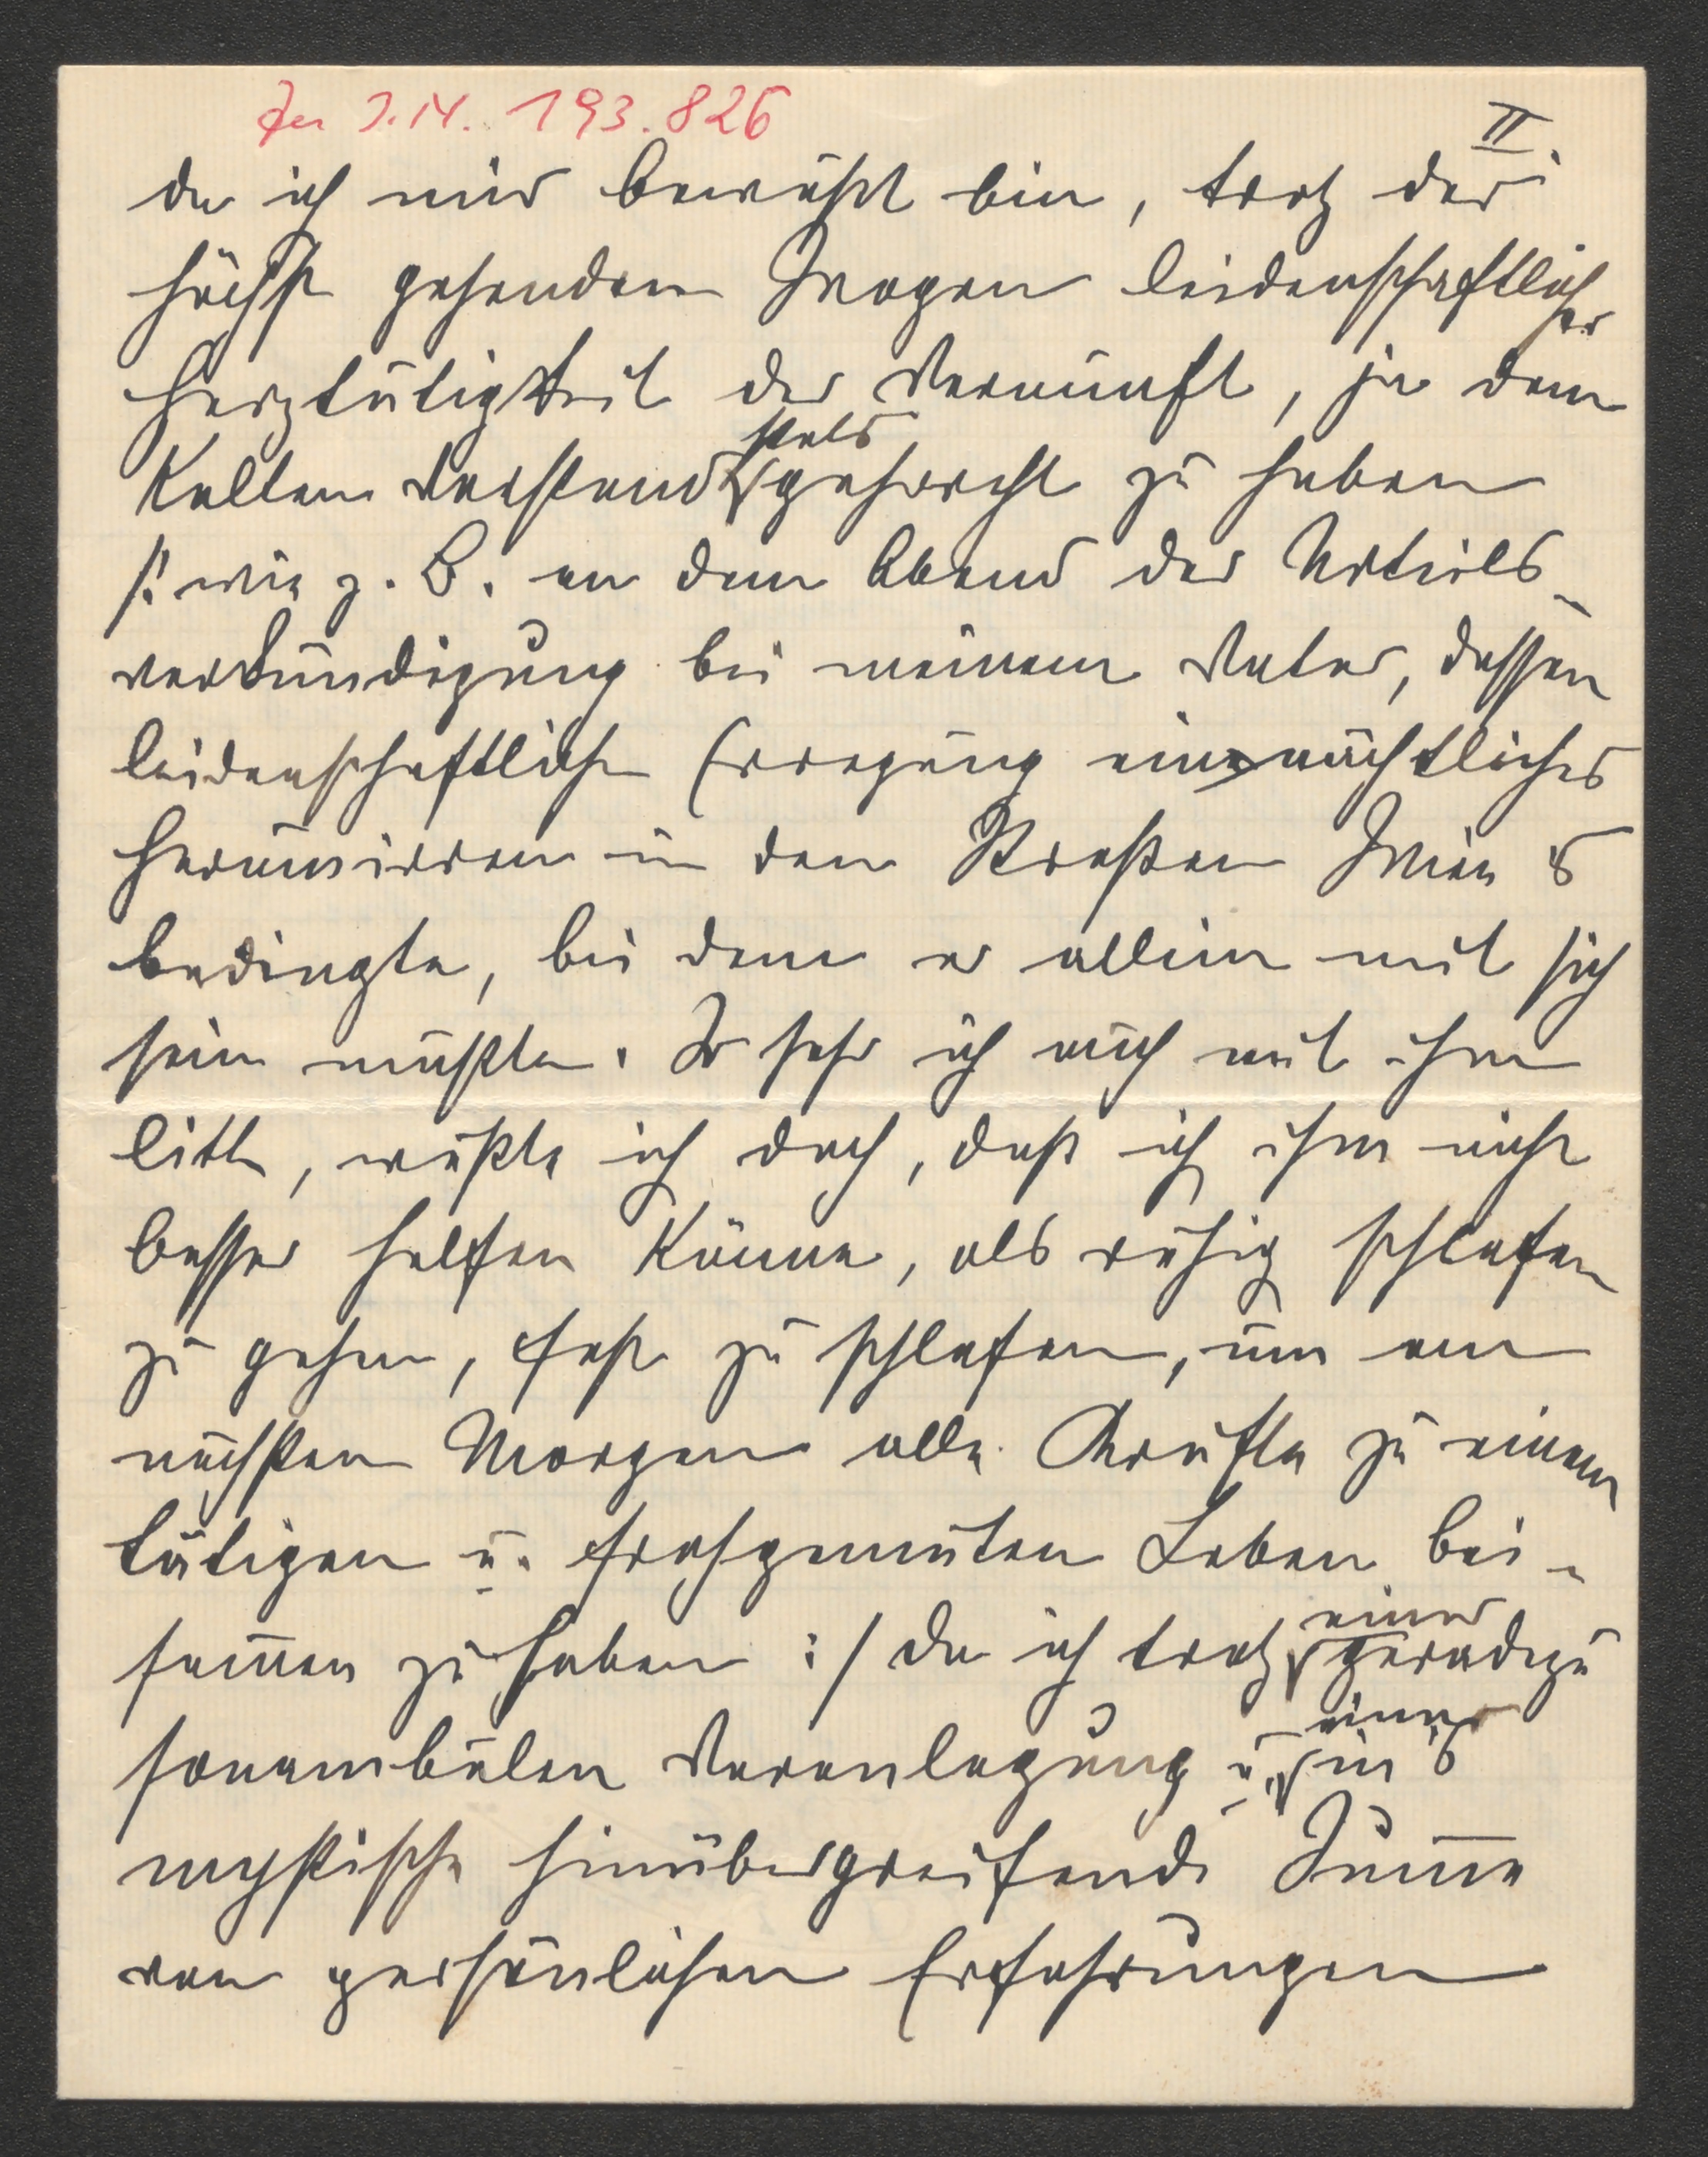 Zu I.N. 193.826
II
da ich mir bewußt bin, trotz der
höchst gehenden Wogen leidenschaftlicher
Herztätigkeit der Vernunft, ja dem
kalten Verstand stets gehorcht zu haben
/: wie z. B. an dem Abend der Urteils-
verkündigung bei meinem Vater, dessen
leidenschaftliche Erregung ein nächtliches
Herumirren in den Straßen Wiens
bedingte, bei dem er allein mit sich
sein mußte. So sehr ich auch mit ihm
litt, wußte ich doch, daß ich ihm nicht
besser helfen könne, als ruhig schlafen
zu gehen, fest zu schlafen, um am
nächsten Morgen alle Kräfte zu einem
tätigen u. frohgemuten Leben bei-
sam̄en zu haben :/ da ich trotz einer geradezu
sonambulen Veranlagung u. einer in's
mystische hinübergreifende Sum̄e
von persönlichen Erfahrungen